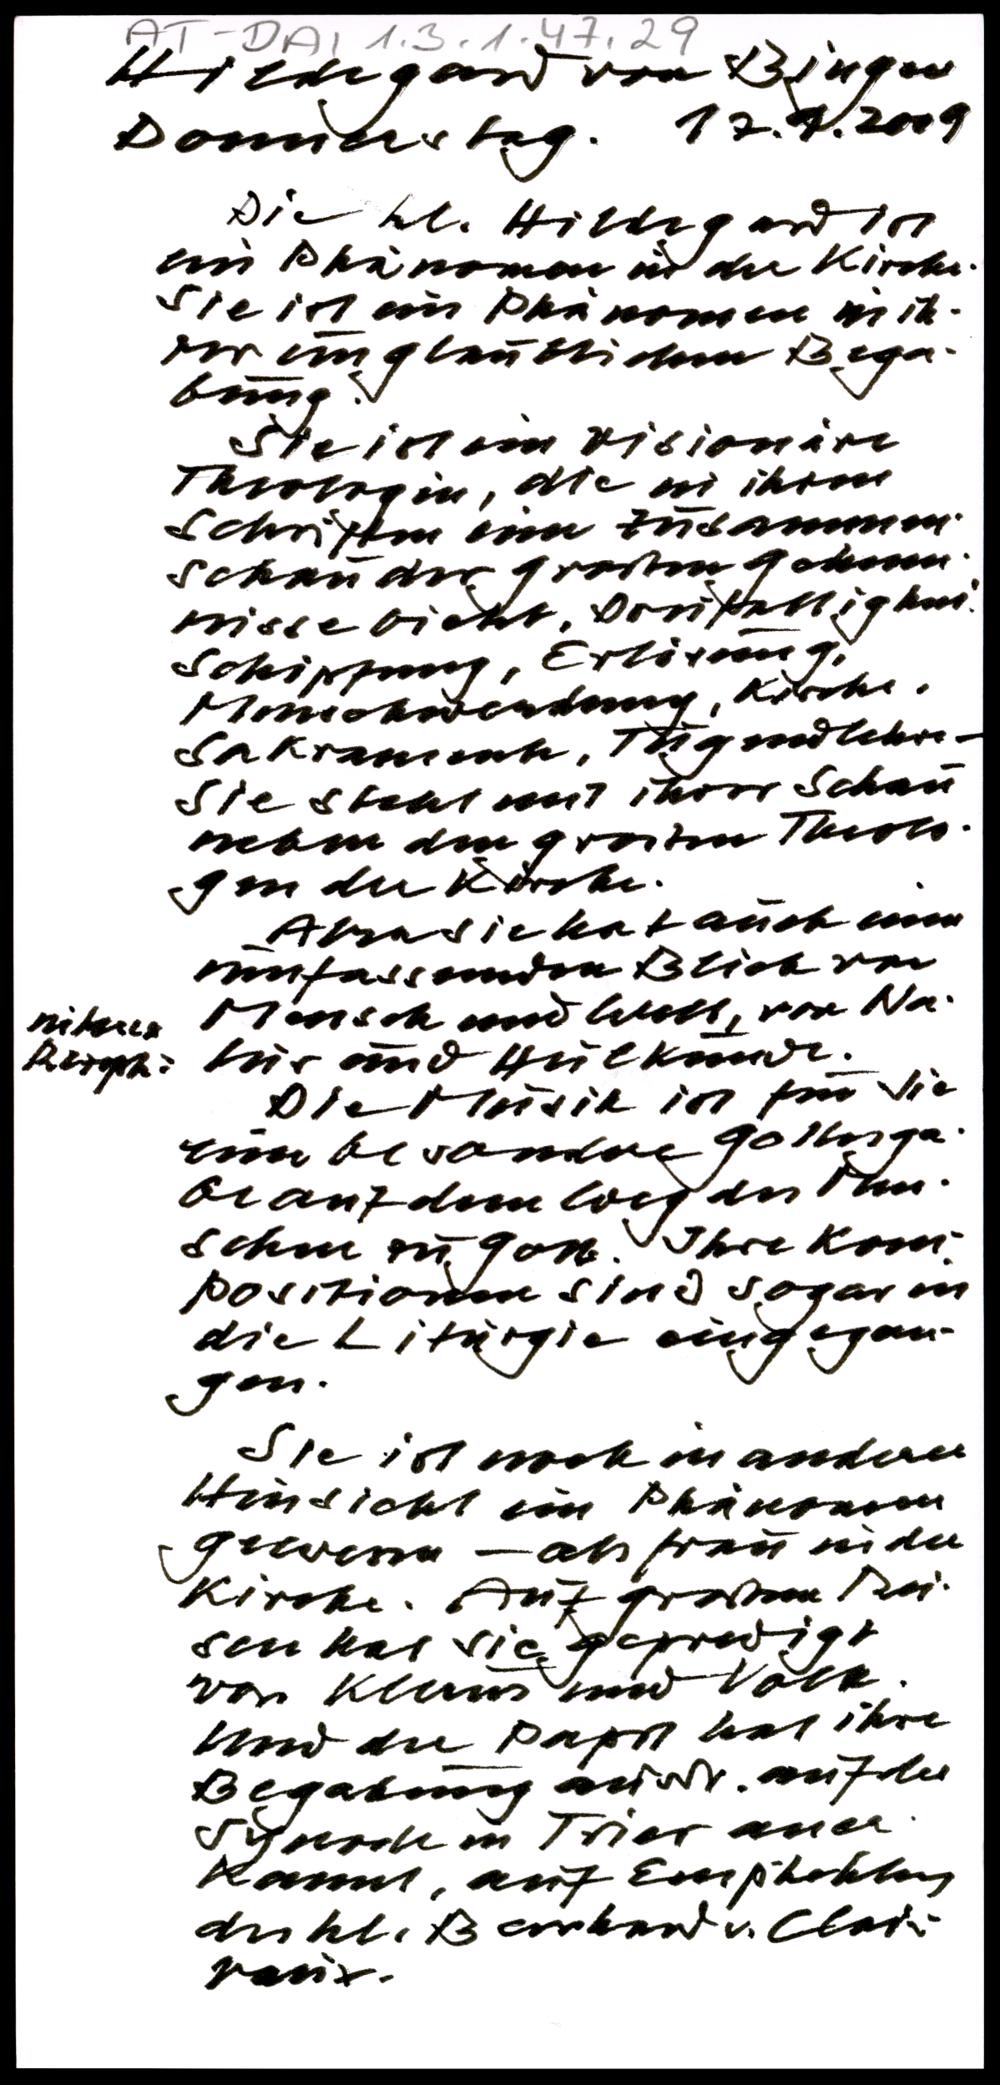 AT-DAI 1.3.1.47.29
Hildegard von Bingen
Donnerstag. 17.9.2009
Die hl. Hildegard ist
ein Phänomen in der Kirche.
Sie ist ein Phänomen in ih-
rer unglaublichen Bega-
bung.
Sie ist eine visionäre
Theologin, die in ihren
Schriften eine Zusammen-
schau der großen Geheim-
nisse bietet, Dreifaltigkeit
Schöpfung, Erlösung,
Menschwerdung, Kirche,
Sakramente, Tugendlehre –
Sie steht mit ihrer Schau
neben den großen Theolo-
gen der Kirche.
Aber sie hat auch einen
umfassenden Blick von
Mensch und Welt, von Na-
tur und Heilkunde.
Die Musik ist für sie
eine besondere Gottesga-
be auf dem Weg des Men-
schen zu Gott. Ihre Kom-
positionen sind sogar in
die Liturgie eingegan-
gen.
Sie ist noch in anderer
Hinsicht ein Phänomen
gewesen – als Frau in der
Kirche. Auf großen Rei-
sen hat sie gepredigt
vor Klerus und Volk.
Und der Papst hat ihre
Begabung auf der
Synode in Trier aner-
kannt, auf Empfehlung
des hl. Bernhard v. Clair-
vaux.